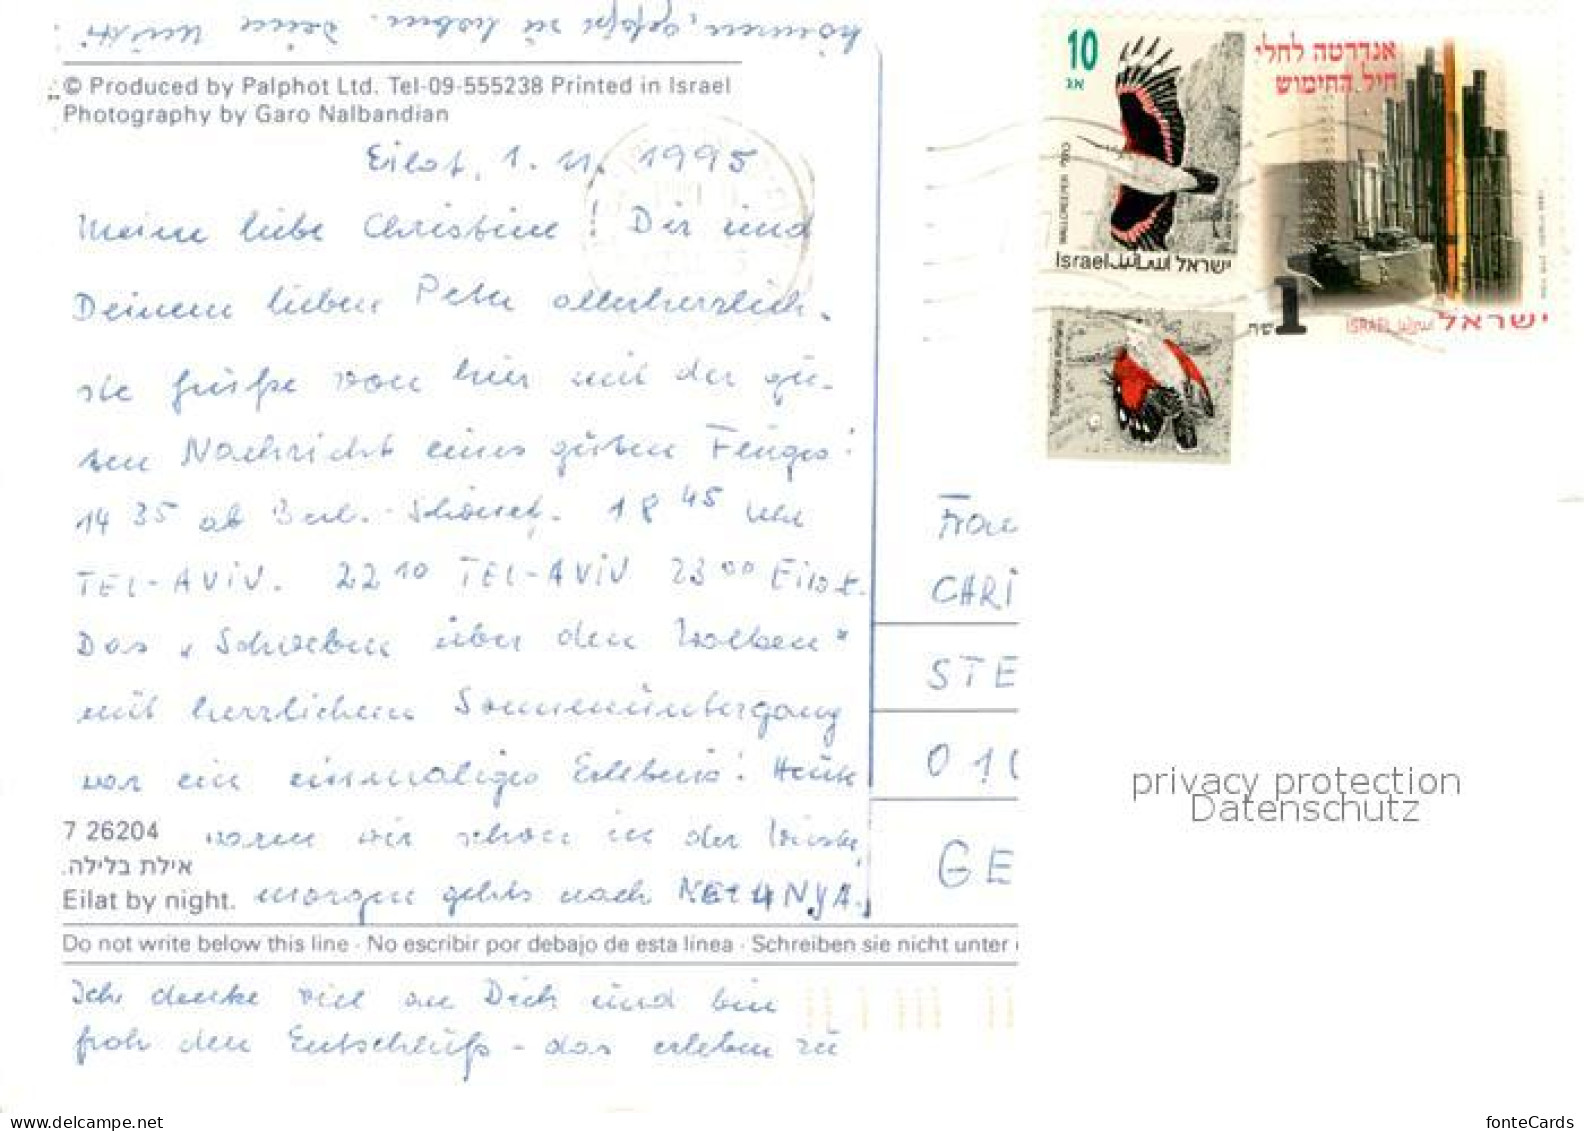 können, gefaßt zu haben. Deine Mutti
© Produced by Palphot Ltd. Tel-09-555238 Printed in Israel
Photography by Garo Nalbandian
Eilat, 1. 11. 1995
Meine liebe Christine! Dir und
Deinem lieben Peter allerherzlich-
ste Grüße von hier mit der gu-
ten Nachricht eines guten Fluges:
14 35 ab Berl.-Schönef. 18 45 Uhr
TEL-AVIV. 22 10 TEL-AVIV 23 00 Eilat.
Das "Schweben über den Wolken"
mit herrlichem Sonnenuntergang
war ein einmaliges Erlebnis! Heute
waren wir schon in der Wüste,
morgen gehts nach NETANYA.
7 26204
אילת בלילה.
Eilat by night.
Do not write below this line · No escribir por debajo de esta linea · Schreiben sie nicht unter
Ich denke viel an Dich und bin
froh den Entschluß - das erleben zu
10
אג
WALLCREEPER
Israel اسرائيل ישראל
אנדרטה לחללי
חיל החימוש
1
ISRAEL اسرائيل ישראל
Frau
CHRI
STE
01
GE
privacy protection
Datenschutz
www.delcampe.net
fonteCards